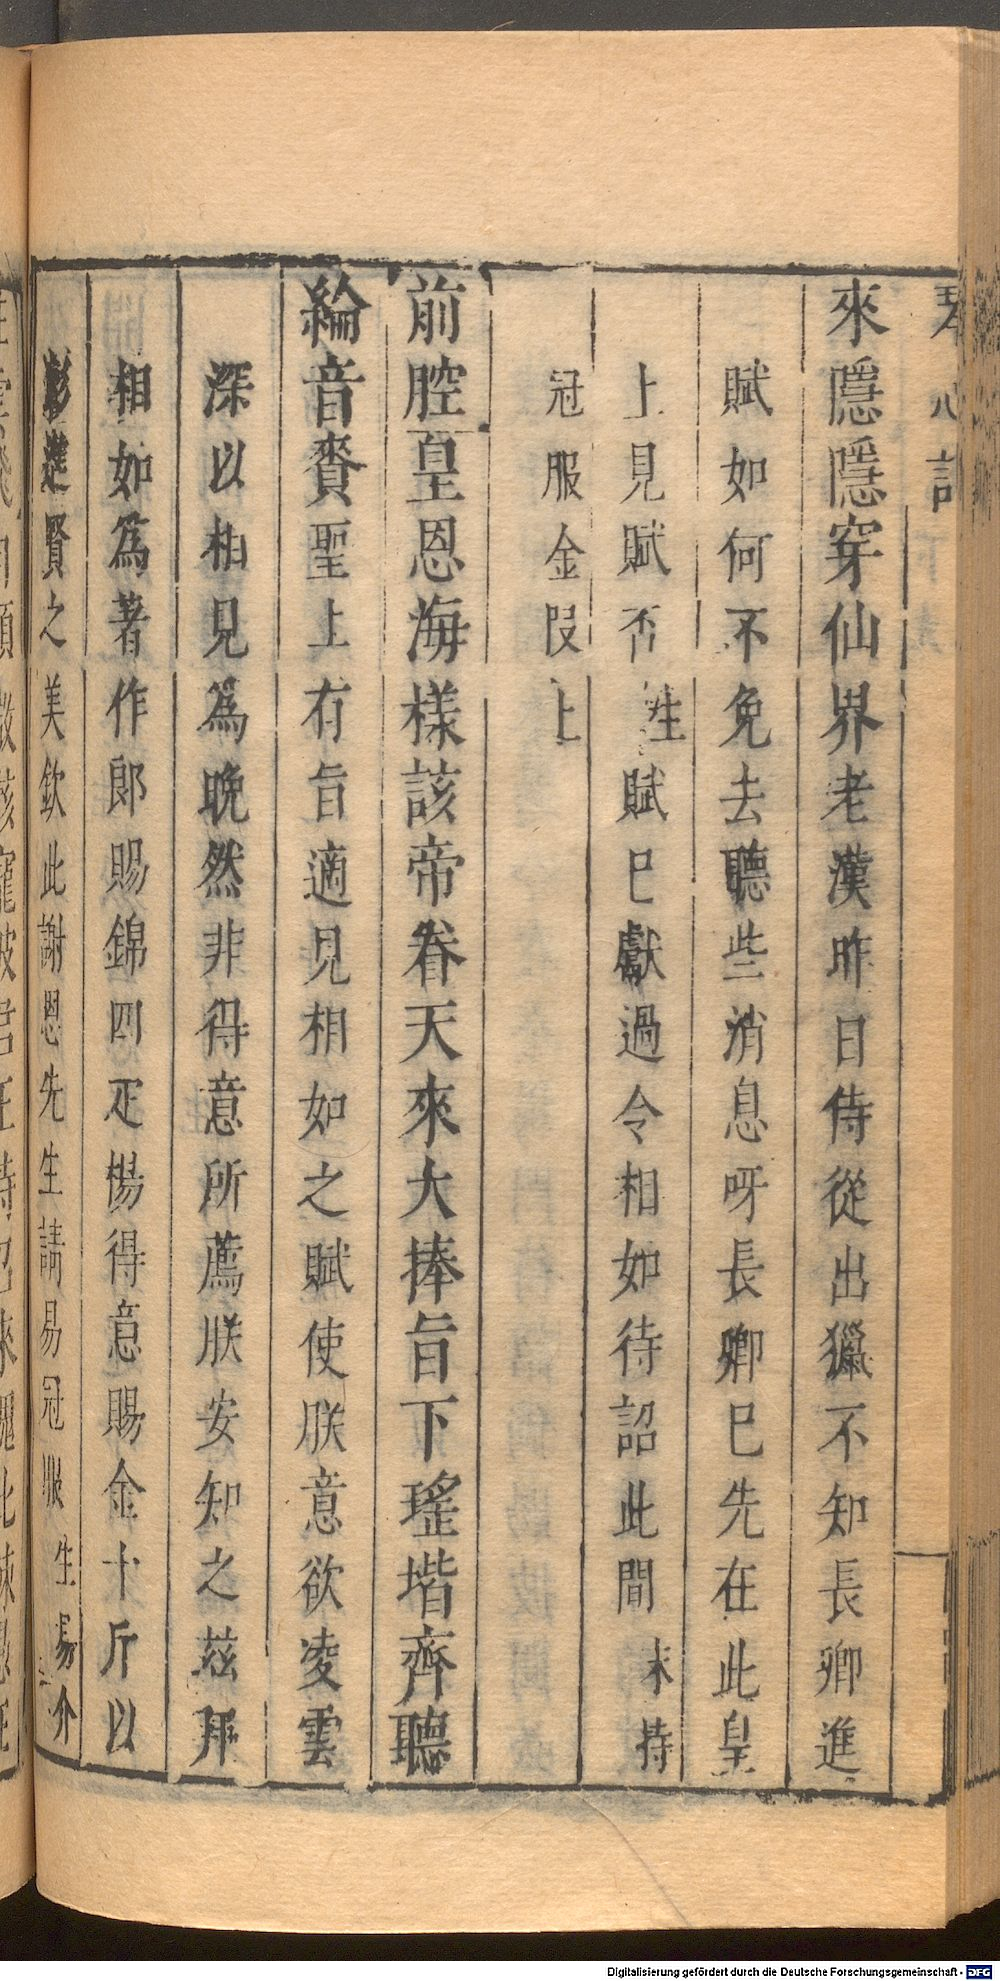 琴心記
來隱隱穿仙界老漢昨日侍從出獵不知長卿進
賦如何不免去聽些消息呀長卿巳先在此皇
上見賦否生賦巳獻過令相如待詔此間末持
冠服金段上
前腔皇恩海樣該帝眷天來大捧旨下瑤堦齊聽
綸音賚聖上有旨適見相如之賦使朕意欲凌雲
深以相見爲晚然非得意所薦朕安知之茲拜
相如爲著作郎賜錦四疋楊得意賜金十斤以
彰進賢之美欽此謝恩先生請易冠服生易介
Digitalisierung gefördert durch die Deutsche Forschungsgemeinschaft - DFG